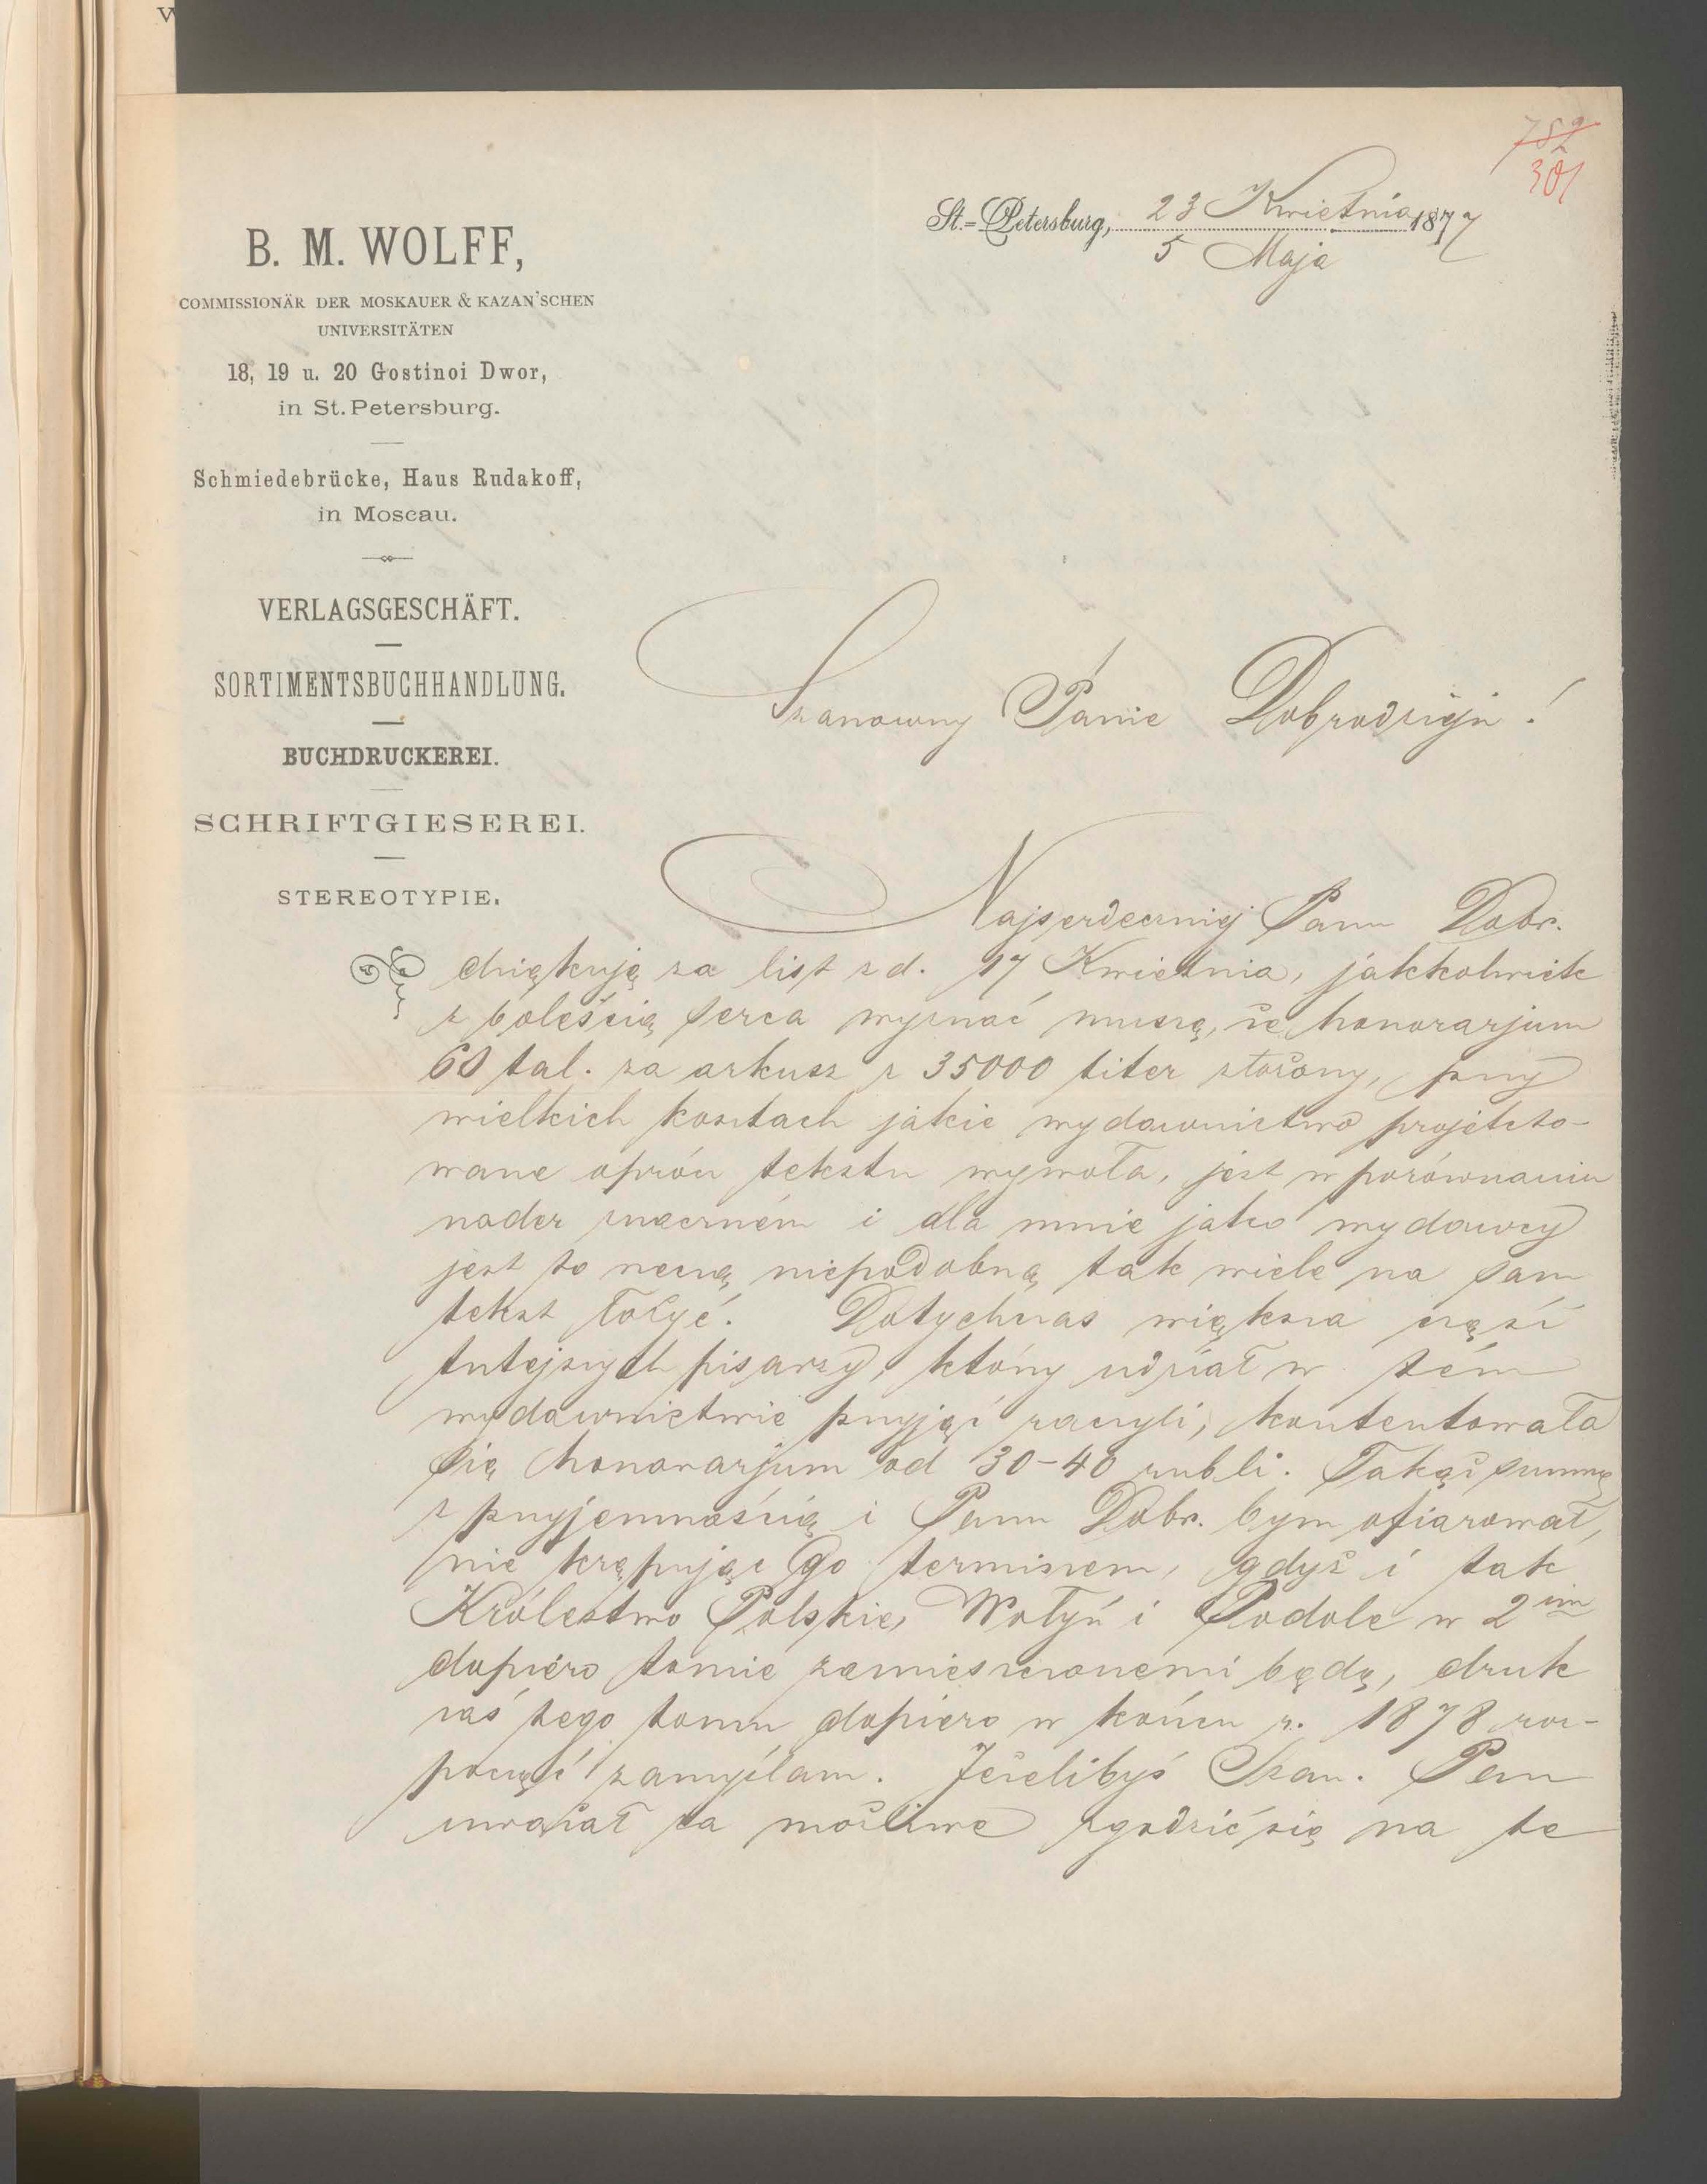 782
301
St.-Petersburg, 23 Kwietnia 1877
5 Maja
B. M. WOLFF,
COMMISSIONÄR DER MOSKAUER & KAZAN'SCHEN
UNIVERSITÄTEN
18, 19 u. 20 Gostinoi Dwor,
in St. Petersburg.
Schmiedebrücke, Haus Rudakoff,
in Moscau.
VERLAGSGESCHÄFT.
SORTIMENTSBUCHHANDLUNG.
BUCHDRUCKEREI.
SCHRIFTGIESEREI.
STEREOTYPIE.
Szanowny Panie Dobrodzieju!
Najserdeczniej Panu Dobr.
dziękuję za list z d. 17 Kwietnia, jakkolwiek
z boleścią serca wyznać muszę, że honorarjum
60 tal. za arkusz z 35000 liter złożony, przy
wielkich kosztach jakie wydawnictwo projekto-
wane oprócz tekstu wywoła, jest w porównaniu
nader znaczném i dla mnie jako wydawcy
jest to rzeczą niepodobną tak wiele na sam
tekst łożyć. Dotychczas większa część
tutejszych pisarzy, którzy udział w tém
wydawnictwie przyjąć raczyli, kontentowała
się honorarjum od 30-40 rubli. Takąż summę
z przyjemnością i Panu Dobr. bym ofiarował,
nie krępując Go terminem, gdyż i tak
Królestwo Polskie, Wołyń i Podole w 2im
dopiéro tomie zamieszczonemi będą, druk
zaś tego tomu dopiero w końcu r. 1878 roz-
począć zamyślam. Jeżelibyś Szan. Pan
uważał za możliwe zgodzić się na te